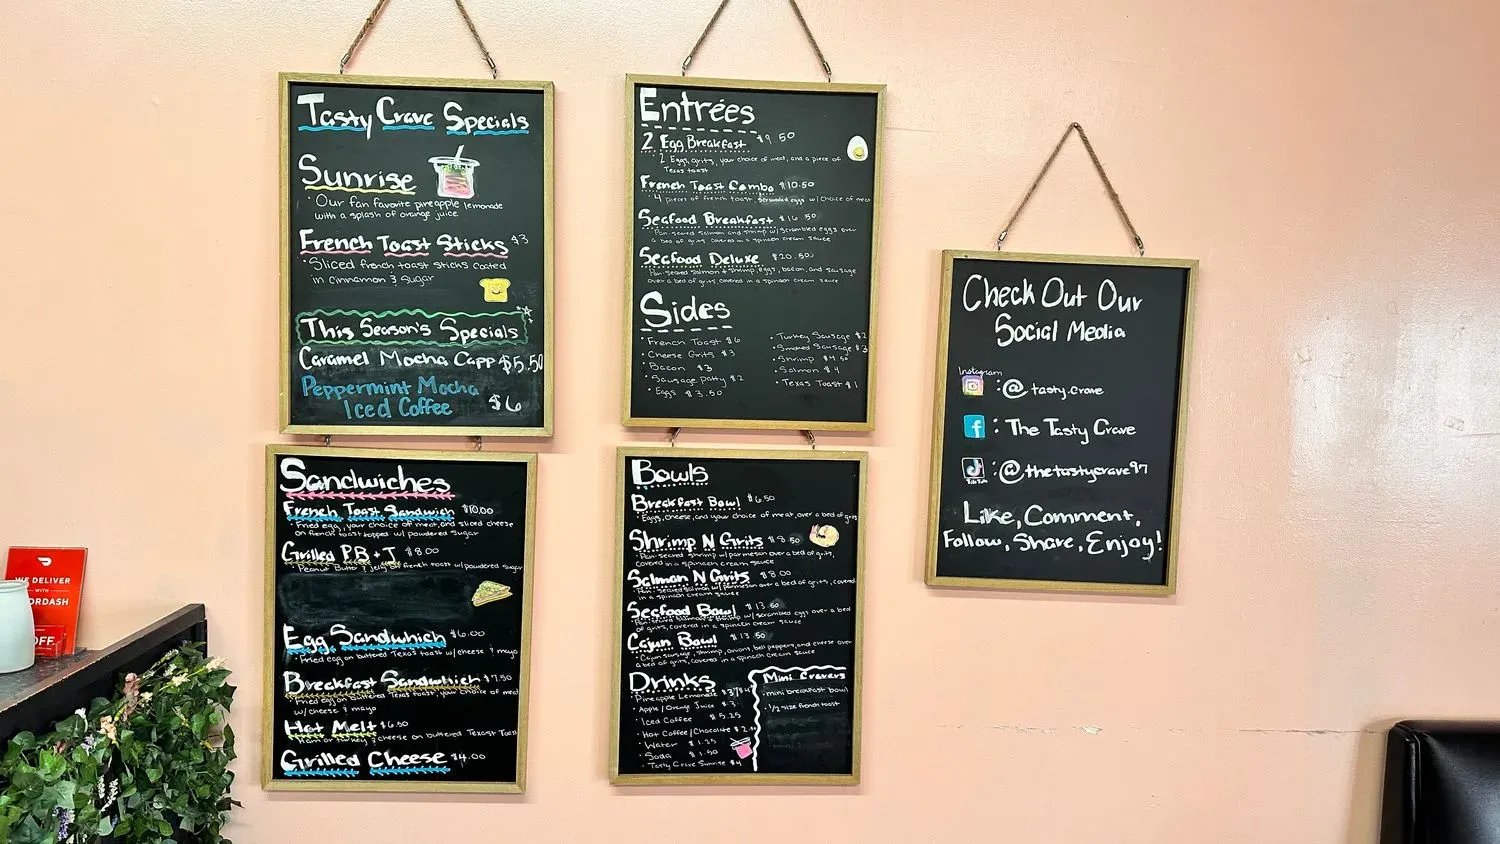 Tasty Crave Specials
Sunrise
• Our fan favorite pineapple lemonade
with a splash of orange juice
French Toast Sticks $3
• Sliced french toast sticks coated
in cinnamon & sugar
This Season's Specials
Caramel Mocha Capp $5.50
Peppermint Mocha
Iced Coffee $6
Entrées
2 Egg Breakfast $9.50
• 2 Eggs, grits, your choice of meat, and a piece of
Texas toast
French Toast Combo $10.50
• 4 pieces of french toast, scrambled eggs w/ choice of meat
Seafood Breakfast $16.50
Pan-seared salmon and shrimp w/ scrambled eggs over
a bed of grits covered in a spinach cream sauce
Seafood Deluxe $20.50
Pan-seared salmon + shrimp, eggs, bacon, and sausage
over a bed of grits covered in a spinach cream sauce
Sides
• French Toast $6
• Cheese Grits $3
• Bacon $3
• Sausage patty $2
• Eggs $3.50
• Turkey Sausage $2
• Smoked Sausage $3
• Shrimp $4.50
• Salmon $4
• Texas Toast $1
Check Out Our
Social Media
Instagram
: @ tasty.crave
f : The Tasty Crave
TikTok : @thetastycrave97
Like, Comment,
Follow, Share, Enjoy!
Sandwiches
French Toast Sandwich $10.00
• Fried egg, your choice of meat, and sliced cheese
on french toast topped w/ powdered sugar
Grilled P.B + J $8.00
• Peanut Butter & jelly on french toast w/ powdered sugar
Egg Sandwhich $6.00
• Fried egg on buttered Texas toast w/ cheese & mayo
Breakfast Sandwhich $7.50
Fried egg on buttered Texas toast, your choice of meat
w/ cheese & mayo
Hot Melt $6.50
Ham or turkey & cheese on buttered Texas Toast
Grilled Cheese $4.00
Bowls
Breakfast Bowl $6.50
• Eggs, cheese, and your choice of meat, over a bed of grits
Shrimp N Grits $8.50
• Pan-seared shrimp w/ parmesan over a bed of grits,
covered in a spinach cream sauce
Salmon N Grits $8.00
Pan-seared salmon w/ parmesan over a bed of grits, covered
in a spinach cream sauce
Seafood Bowl $13.50
Pan-seared salmon & shrimp w/ scrambled eggs over a bed
of grits, covered in a spinach cream sauce
Cajun Bowl $13.50
• Cajun sausage, shrimp, onions, bell peppers, and cheese over
a bed of grits, covered in a spinach cream sauce
Drinks
• Pineapple Lemonade
• Apple/Orange Juice $3
• Iced Coffee $5.25
• Hot Coffee/Chocolate
• Water $1.25
• Soda $1.50
• Tasty Crave Sunrise $4
Mini Cravers
• mini breakfast bowl
• 1/2 size french toast
WE DELIVER
WITH
ORDASH
OFF